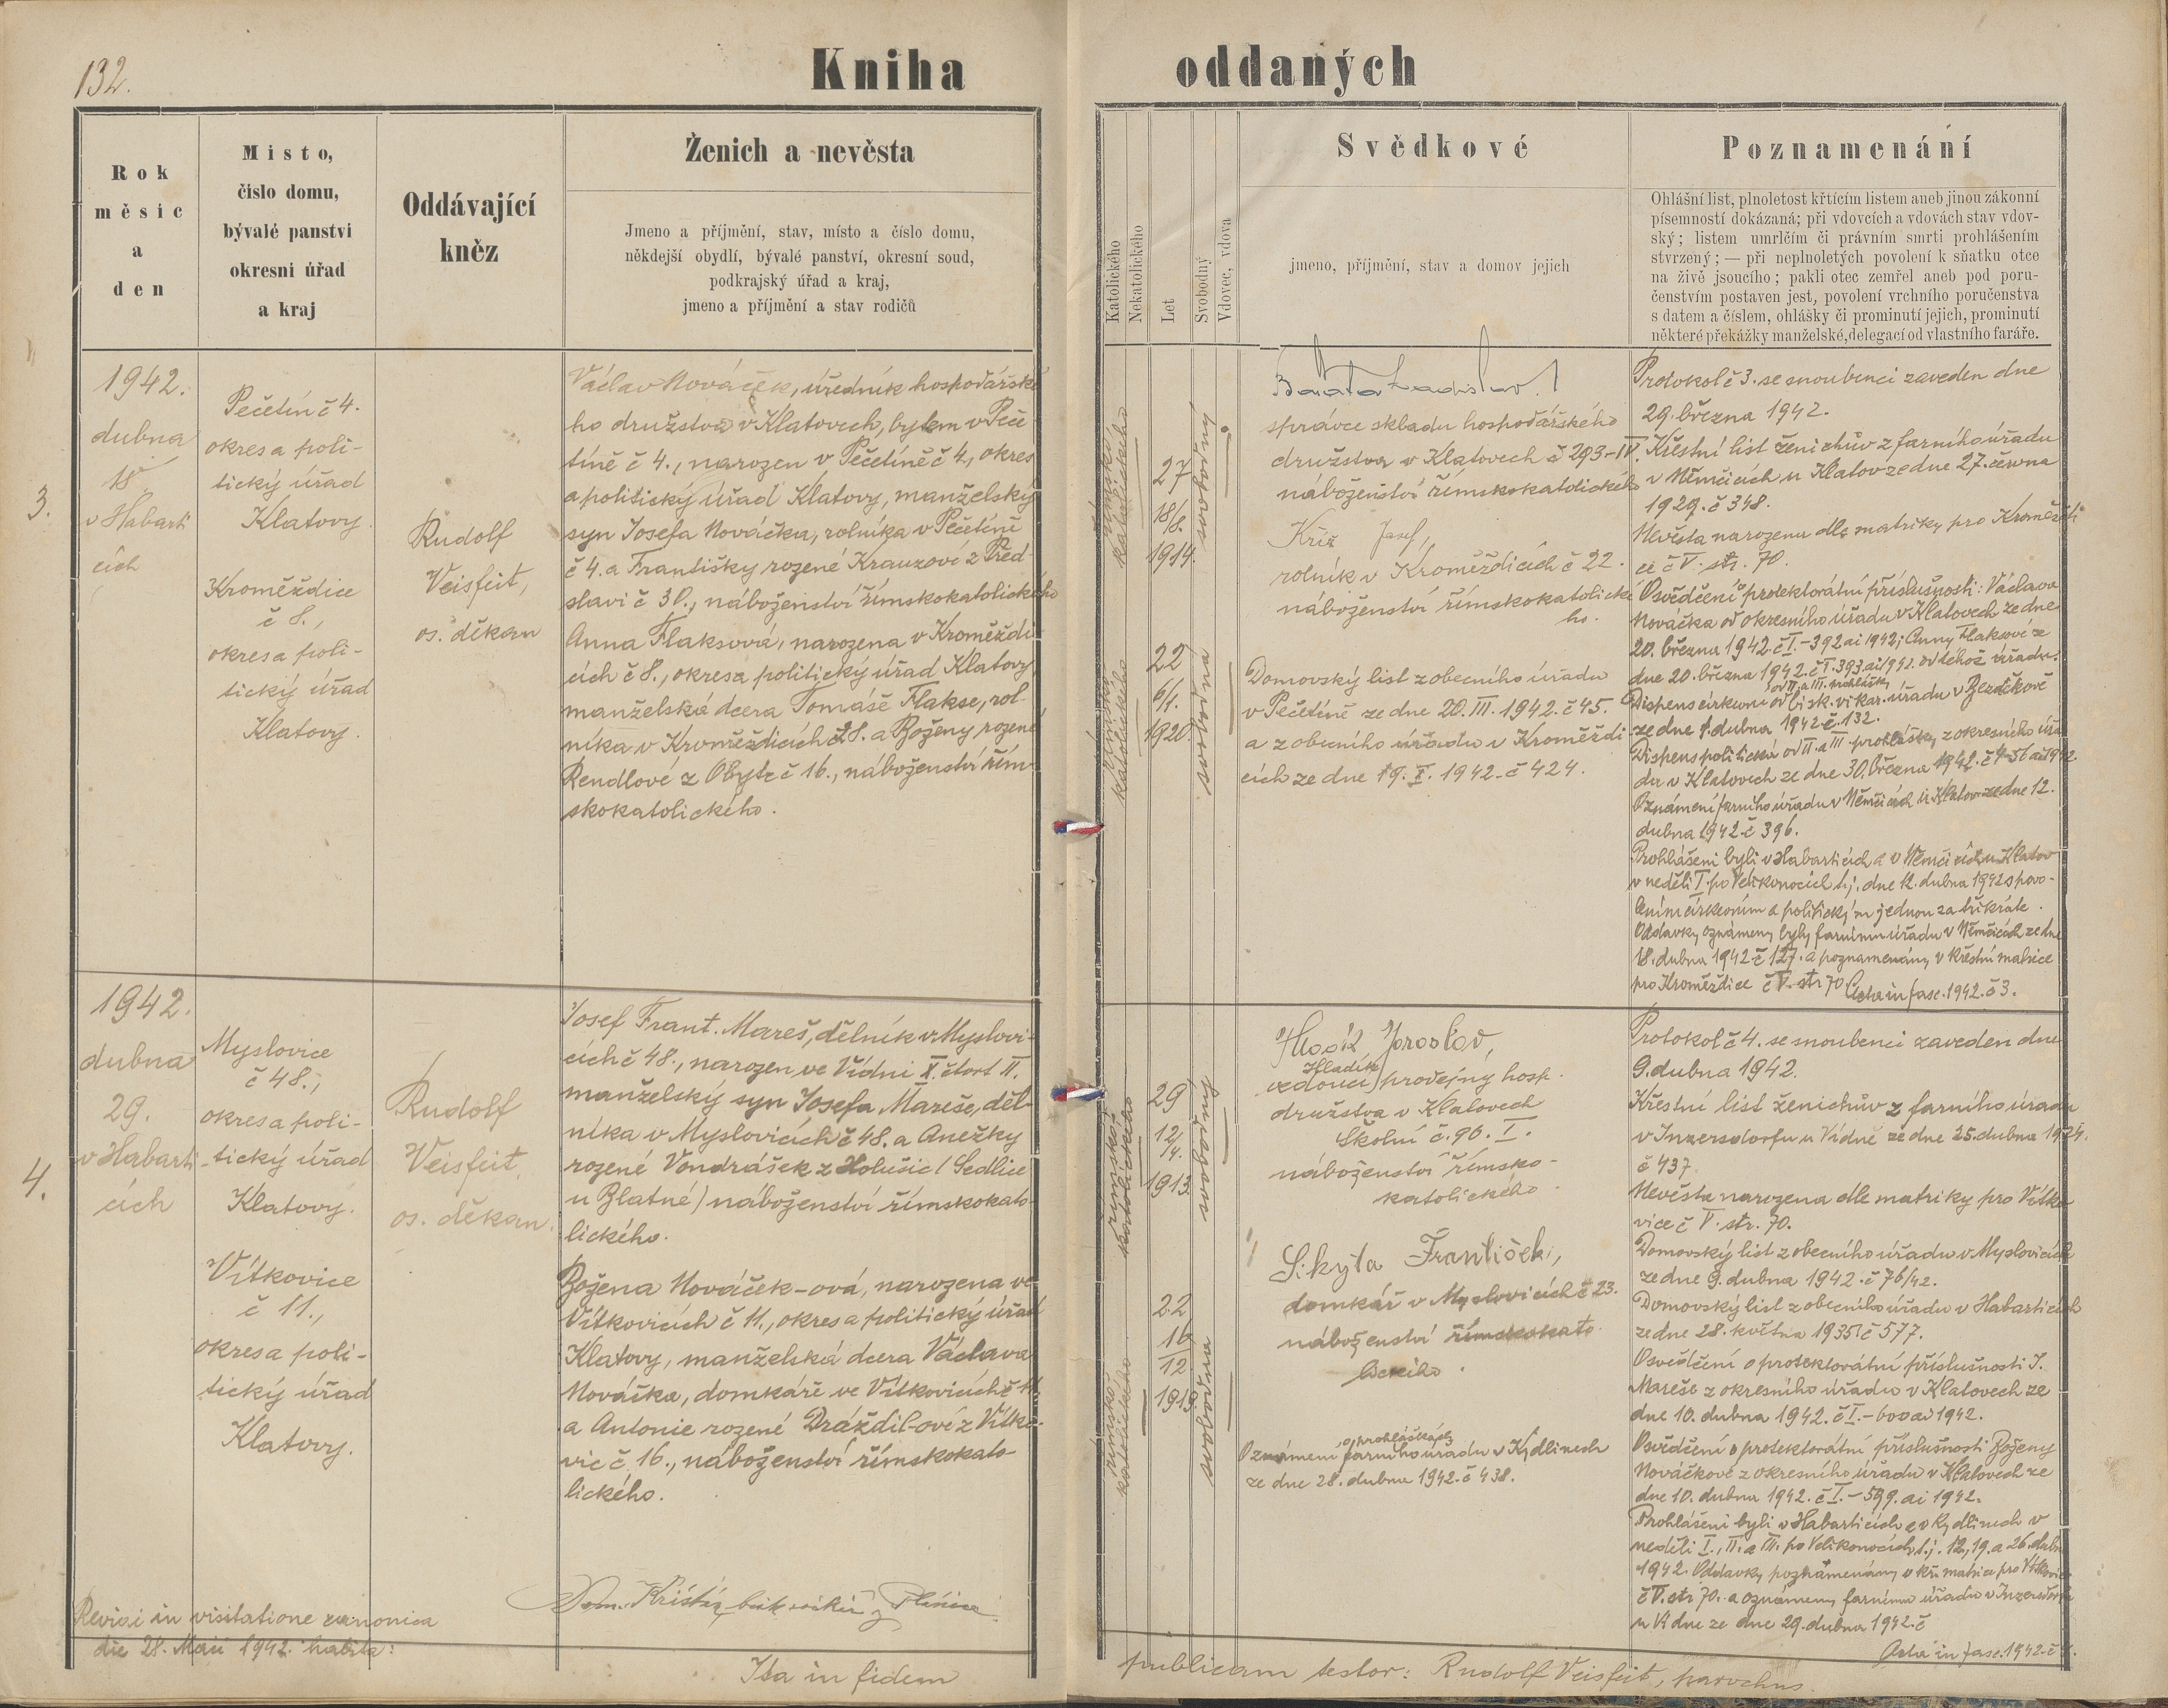 132.
Kniha oddaných
Rok
měsíc
a
den
Místo,
číslo domu,
bývalé panství
okresní úřad
a kraj
Oddávající
kněz
Ženich a nevěsta
Jmeno a příjmění, stav, místo a číslo domu,
někdejší obydlí, bývalé panství, okresní soud,
podkrajský úřad a kraj,
jmeno a příjmění a stav rodičů
Katolického
Nekatolického
Let
Svobodný
Vdovec, vdova
Svědkové
jmeno, příjmění, stav a domov jejich
Poznamenání
Ohlášní list, plnoletost křtícím listem aneb jinou zákonní
písemností dokázaná; při vdovcích a vdovách stav vdov-
ský; listem umrlčím či právním smrti prohlášením
stvrzený; — při neplnoletých povolení k sňatku otce
na živě jsoucího; pakli otec zemřel aneb pod poru-
čenstvím postaven jest, povolení vrchního poručenstva
s datem a číslem, ohlášky či prominutí jejich, prominutí
některé překážky manželské, delegací od vlastního faráře.
3.
1942.
dubna
18
v Habarti
cích
Pečetín č 4.
okres a poli-
tický úřad
Klatovy.
Kroměždice
č 8.,
okres a poli-
tický úřad
Klatovy.
Rudolf
Veisfeit,
os. děkan
Václav Nováček, úředník hospodářské
ho družstva v Klatovech, bytem v Peče
tíně č 4., narozen v Pečetíně č 4, okres
a politický úřad Klatovy, manželský
syn Josefa Nováčka, rolníka v Pečetíně
č 4. a Františky rozené Krauzové z Před-
slavi č 30., náboženství římskokatolického
Anna Flaksová, narozena v Kroměždi
cích č 8., okres a politický úřad Klatovy
manželská dcera Tomáše Flakse, rol-
níka v Kroměždicích č 8. a Boženy rozené
Rendlové z Obytc č 16., náboženství řím-
skokatolického.
římsko
katolického
27
18/8.
1914.
svobodný
římsko
katolického
22
6/1.
1920.
svobodná
Baráta Ladislav
správce skladu hospodářského
družstva v Klatovech č 293-IV.
náboženství římskokatolického
Kříž Josef,
rolník v Kroměždicích č 22.
náboženství římskokatolické
ho.
Domovský list z obecního úřadu
v Pečetíně ze dne 20. III. 1942. č 45.
a z obecního úřadu v Kroměždi-
cích ze dne 19. X. 1942. č 424.
Protokol č 3. se snoubenci zaveden dne
29. března 1942.
Křestní list ženichův z farního úřadu
v Němčicích u Klatov ze dne 27. června
1929. č 348.
Nevěsta narozena dle matriky pro Kroměždi
ce č V. str. 70.
Osvědčení protektorátní příslušnosti: Václava
Nováčka od okresního úřadu v Klatovech ze dne
20. března 1942. č I.-392 ai 1942; Anny Flaksové z
dne 20. března 1942. č I. 393. ai 1942. od téhož úřadu.
od II. a III. prohlášky
Dispens církevní od bisk. vikar. úřadu v Bezděkově
ze dne 1. dubna 1942 č. 132.
Dispens politická od II. a III. prohlášky z okresního úřa
du v Klatovech ze dne 30. března 1942.
Oznámení farního úřadu v Němčicích u Klatov ze dne 12.
dubna 1942 č 396.
Prohlášeni byli v Habarticích a v Němčicích u Klatov
v neděli I. po Velikonocích t.j. dne 12. dubna 1942 s povo-
lením církevním a politickým jednou za třikráte.
Oddavky oznámeny byly farnímu úřadu v Němčicích ze dne
18. dubna 1942 č 127. a poznamenány v křestní matrice
pro Kroměždice č V. str 70 Acta in fasc. 1942. č 3.
4.
1942.
dubna
29.
v Habarti
cích
Myslovice
č 48.,
okres a poli-
tický úřad
Klatovy.
Vítkovice
č 11.,
okres a poli-
tický úřad
Klatovy.
Rudolf
Veisfeit,
os. děkan.
Josef Frant. Mareš, dělník v Myslovi-
cích č 48., narozen ve Vídni X. čtvrt II.
manželský syn Josefa Mareše, děl-
níka v Myslovicích č 48. a Anežky
rozené Vondrášek z Holušic (Sedlice
u Blatné) náboženství římskokato-
lického.
Božena Nováček-ová, narozena ve
Vítkovicích č 11., okres a politický úřad
Klatovy, manželská dcera Václava
Nováčka, domkáře ve Vítkovicích č 11.
a Antonie rozené Dráždil-ové z Vítko-
vic č 16., náboženství římskokato-
lického.
římsko
katolického
29
12/4.
1913.
svobodný
římsko
katolického
22
16
12
1919.
svobodna
Jaroslav,
Hladík
vedoucí prodejny hosp.
družstva v Klatovech
Školní č. 96. I.
náboženství římsko-
katolického.
Sikyta František,
domkář v Myslovicích č 23.
náboženství římskokato-
lického.
o prohláškách
Oznámení farního úřadu v Kydlinech
ze dne 28. dubna 1942. č 438.
Protokol č 4. se snoubenci zaveden dne
9. dubna 1942.
Křestní list ženichův z farního úřadu
v Inzersdorfu u Vídně ze dne 25. dubna 1924.
č 437.
Nevěsta narozena dle matriky pro Vítko
vice č V. str. 70.
Domovský list z obecního úřadu v Myslovicích
ze dne 9. dubna 1942. č 76/42.
Domovský list z obecního úřadu v Habarticích
ze dne 28. května 1935. č 577.
Osvědčení o protektorátní příslušnosti J.
Mareše z okresního úřadu v Klatovech ze
dne 10. dubna 1942. č I.-600 ai 1942.
Osvědčení o protektorátní příslušnosti Boženy
Nováčkové z okresního úřadu v Klatovech ze
dne 10. dubna 1942. č I.-599. ai 1942.
Prohlášeni byli v Habarticích a v Kydlinech v
neděli I., II. a III. po Velikonocích t.j. 12., 19. a 26. dubna
1942. Oddavky poznamenány v kř. matrice pro Vítkovice
č V. str 70. a oznámeny farnímu úřadu v Inzersdorfu
u Vídne ze dne 29. dubna 1942. č
Acta in fasc. 1942. č 4.
Revisi in visitatione canonica
die 28. Maii 1942. habita:
Ita in fidem
publicam testor: Rudolf Veisfeit, parochus.